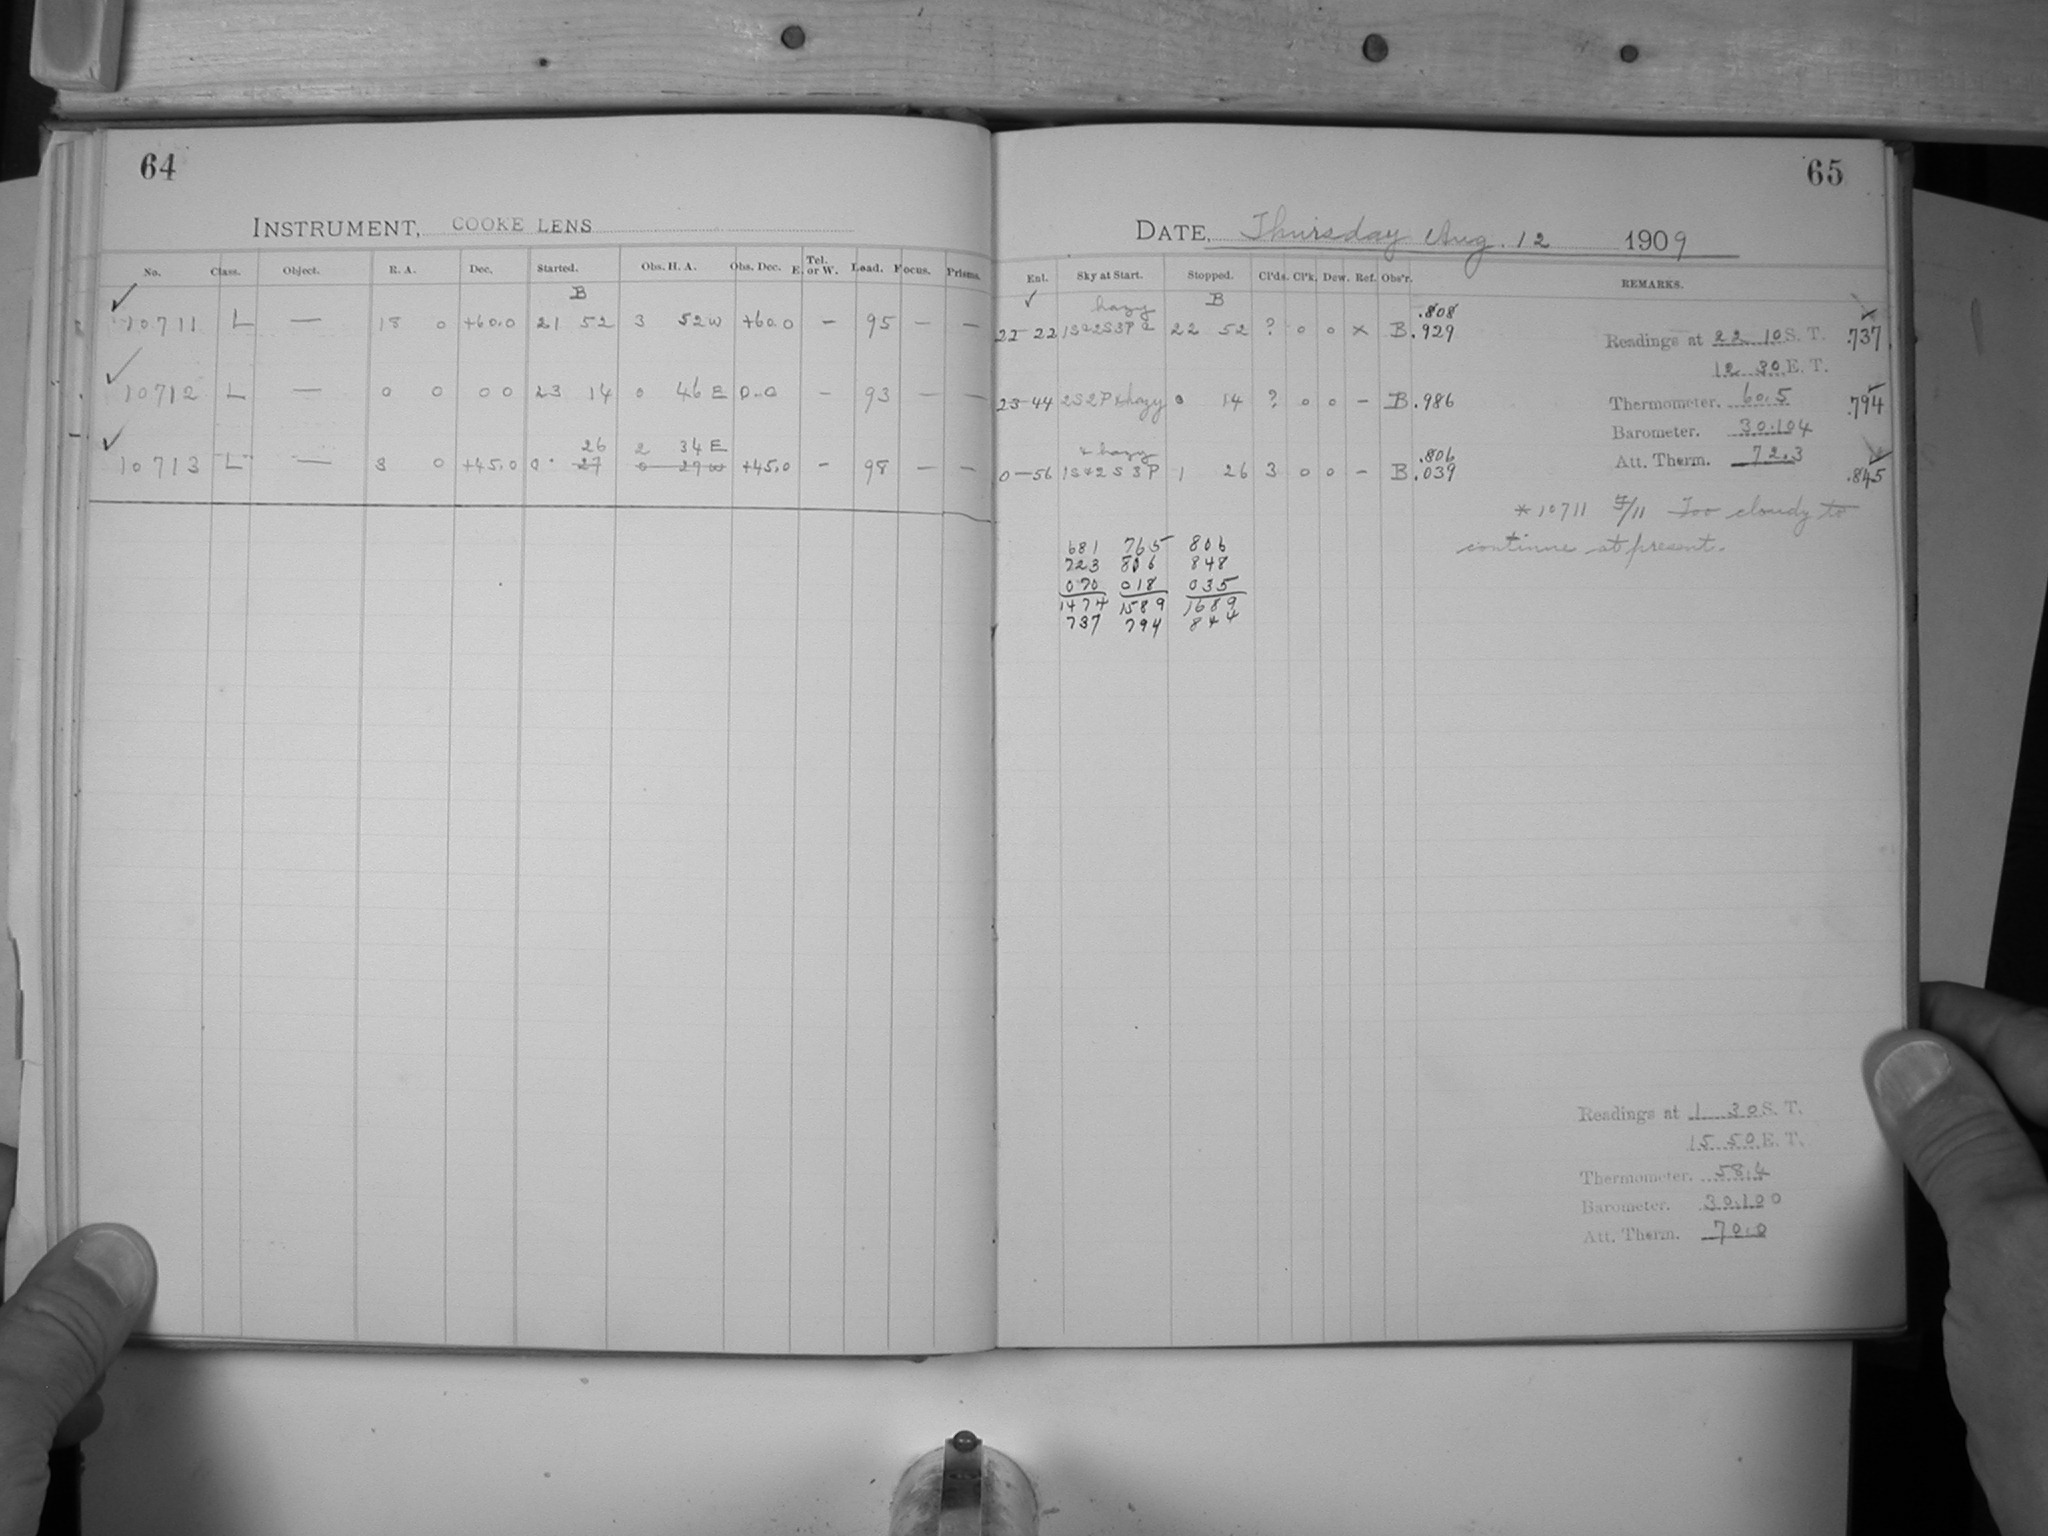 64
INSTRUMENT, COOKE LENS
No. Class. Object. R. A. Dec. Started. Obs. H. A. Obs. Dec. Tel. E. or W. Load. Focus. Prisms.
B
10711 L — 18 0 +60.0 21 52 3 52 W +60.0 – 95 — —
10712 L — 0 0 0 0 23 14 0 46 E 0.0 – 93 — —
26 2 34 E
10713 L — 3 0 +45.0 0 27 0 29 W +45.0 – 98 — —
65
DATE, Thursday Aug. 12 1909
Enl. Sky at Start. Stopped. Cl'ds. Cl'k. Dew. Ref. Obs'r. REMARKS.
hazy B .808
22-22 1S+2S3P 22 52 ? 0 0 x B .929
Readings at 22 10 S. T. .737
12 30 E. T.
23-44 2S2P+hazy 0 14 ? 0 0 – B .986
Thermometer. 60.5 .794
Barometer. 30.104
+ hazy .806
0-56 1S+2S3P 1 26 3 0 0 – B .039
Att. Therm. 72.3 .845
*10711 F/11 Too cloudy to
continue at present.
681 765 806
723 806 848
070 018 035
1474 1589 1689
737 794 844
Readings at 1 30 S. T.
15 50 E. T.
Thermometer. 58.4
Barometer. 30.100
Att. Therm. 70.0